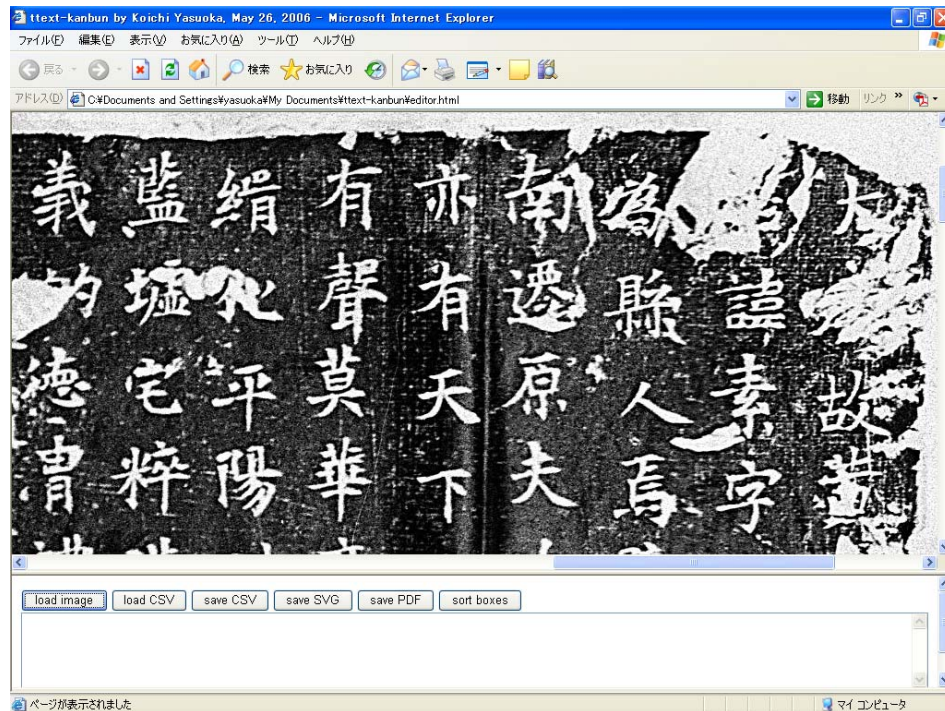 ttext-kanbun by Koichi Yasuoka, May 26, 2006 - Microsoft Internet Explorer
ファイル(F) 編集(E) 表示(V) お気に入り(A) ツール(T) ヘルプ(H)
戻る 検索 お気に入り
アドレス(D) C:¥Documents and Settings¥yasuoka¥My Documents¥ttext-kanbun¥editor.html 移動 リンク »
大故造
諱素字
為縣人焉
南遷原夫
亦有天下
有聲莫華
緝化平陽
藍墟宅粹
義德冑
load image load CSV save CSV save SVG save PDF sort boxes
ページが表示されました マイ コンピュータ